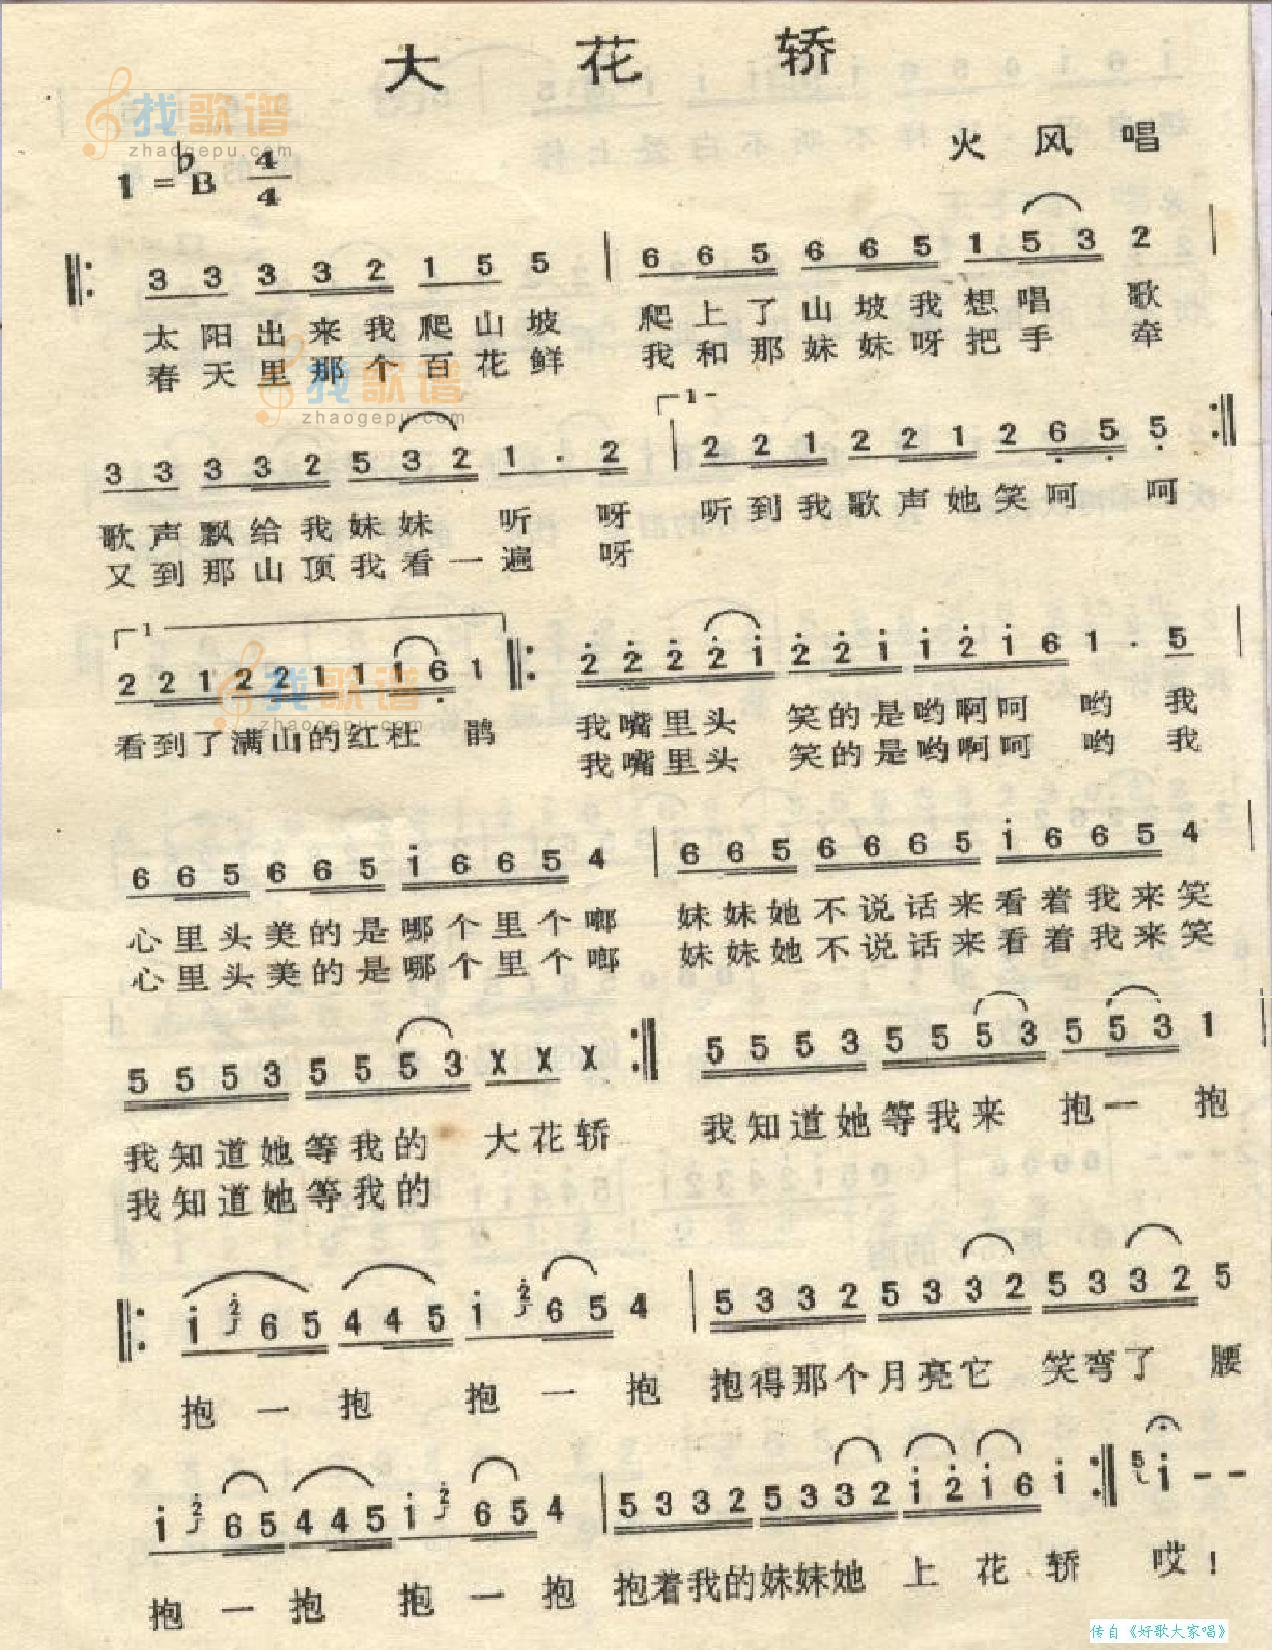 大 花 轿
找歌谱
zhaogepu.com
火 风 唱
1=♭B 4/4
3 3 3 3 2 1 5 5 | 6 6 5 6 6 5 1 5 3 2 |
太阳出来我爬山坡 爬上了山坡我想唱 歌
春天里那个百花鲜 我和那妹妹呀把手 牵
找歌谱
zhaogepu.com
1-
3 3 3 3 2 5 3 2 1 . 2 | 2 2 1 2 2 1 2 6 5 5 :
歌声飘给我妹妹 听 呀 听到我歌声她笑呵 呵
又到那山顶我看一遍 呀
1
2 2 1 2 2 1 1 1 6 1 : 2 2 2 2 i 2 2 i i 2 i 6 1 . 5 |
找歌谱
zhaogepu.com
看到了满山的红杜 鹃 我嘴里头 笑的是哟啊呵 哟 我
我嘴里头 笑的是哟啊呵 哟 我
6 6 5 6 6 5 i 6 6 5 4 | 6 6 5 6 6 6 5 i 6 6 5 4 |
心里头美的是哪个里个啷 妹妹她不说话来看着我来笑
心里头美的是哪个里个啷 妹妹她不说话来看着我来笑
5 5 5 3 5 5 5 3 X X X : 5 5 5 3 5 5 5 3 5 5 3 1 |
我知道她等我的 大花轿 我知道她等我来 抱一 抱
我知道她等我的
: i 2 6 5 4 4 5 i 2 6 5 4 | 5 3 3 2 5 3 3 2 5 3 3 2 5
抱 一 抱 抱 一 抱 抱得那个月亮它 笑弯了 腰
i 2 6 5 4 4 5 i 2 6 5 4 | 5 3 3 2 5 3 3 2 i 2 i 6 i : 5 i - -
抱 一 抱 抱 一 抱 抱着我的妹妹她 上 花 轿 哎！
传自《好歌大家唱》